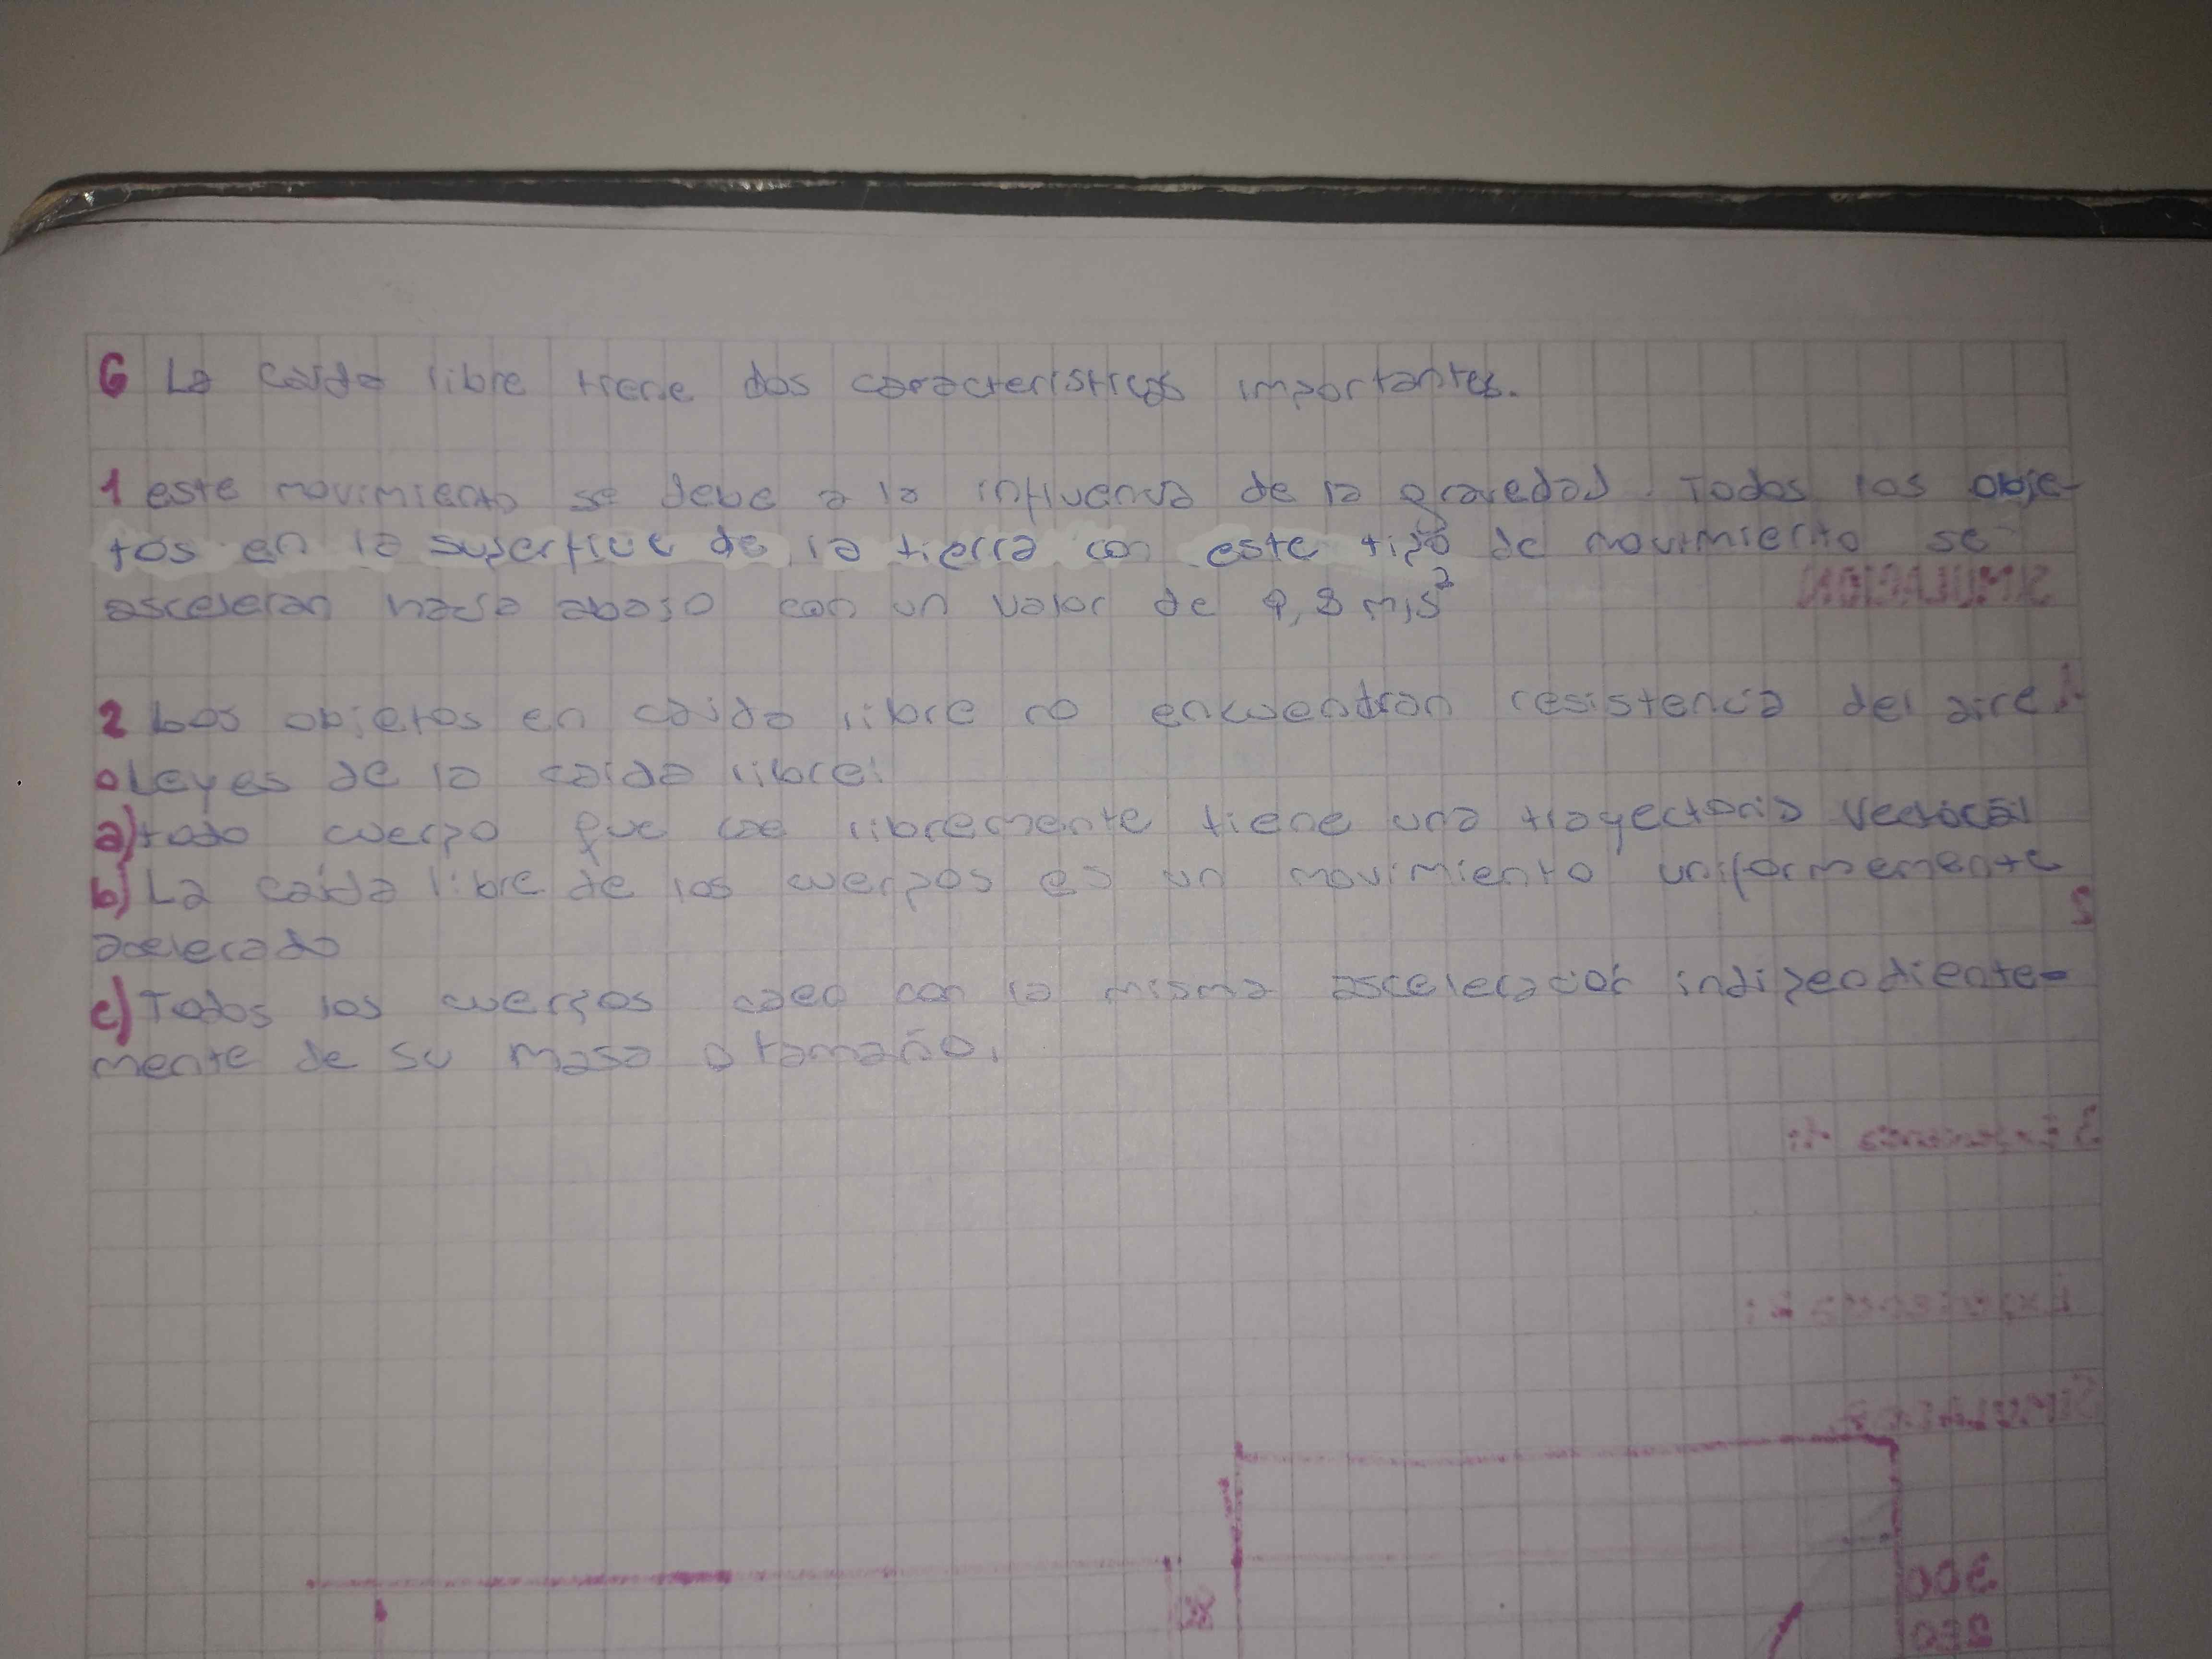 6 La caida libre tiene dos caracteristicas importantes.
1 este movimiento se debe a la influencia de la gravedad. Todos los obje-
tos en la superficie de la tierra con este tipo de movimiento se
asceleran hacia abajo con un valor de 9,8 m/s²
2 Los objetos en caida libre no encuentran resistencia del aire.
o Leyes de la caida libre:
a) todo cuerpo que cae libremente tiene una trayectoria vertical
b) La caida libre de los cuerpos es un movimiento uniformemente
acelerado
c) Todos los cuerpos caen con la misma asceleracion indipendiente-
mente de su masa o tamaño.
SIMULACION
SIMULACION
300
250